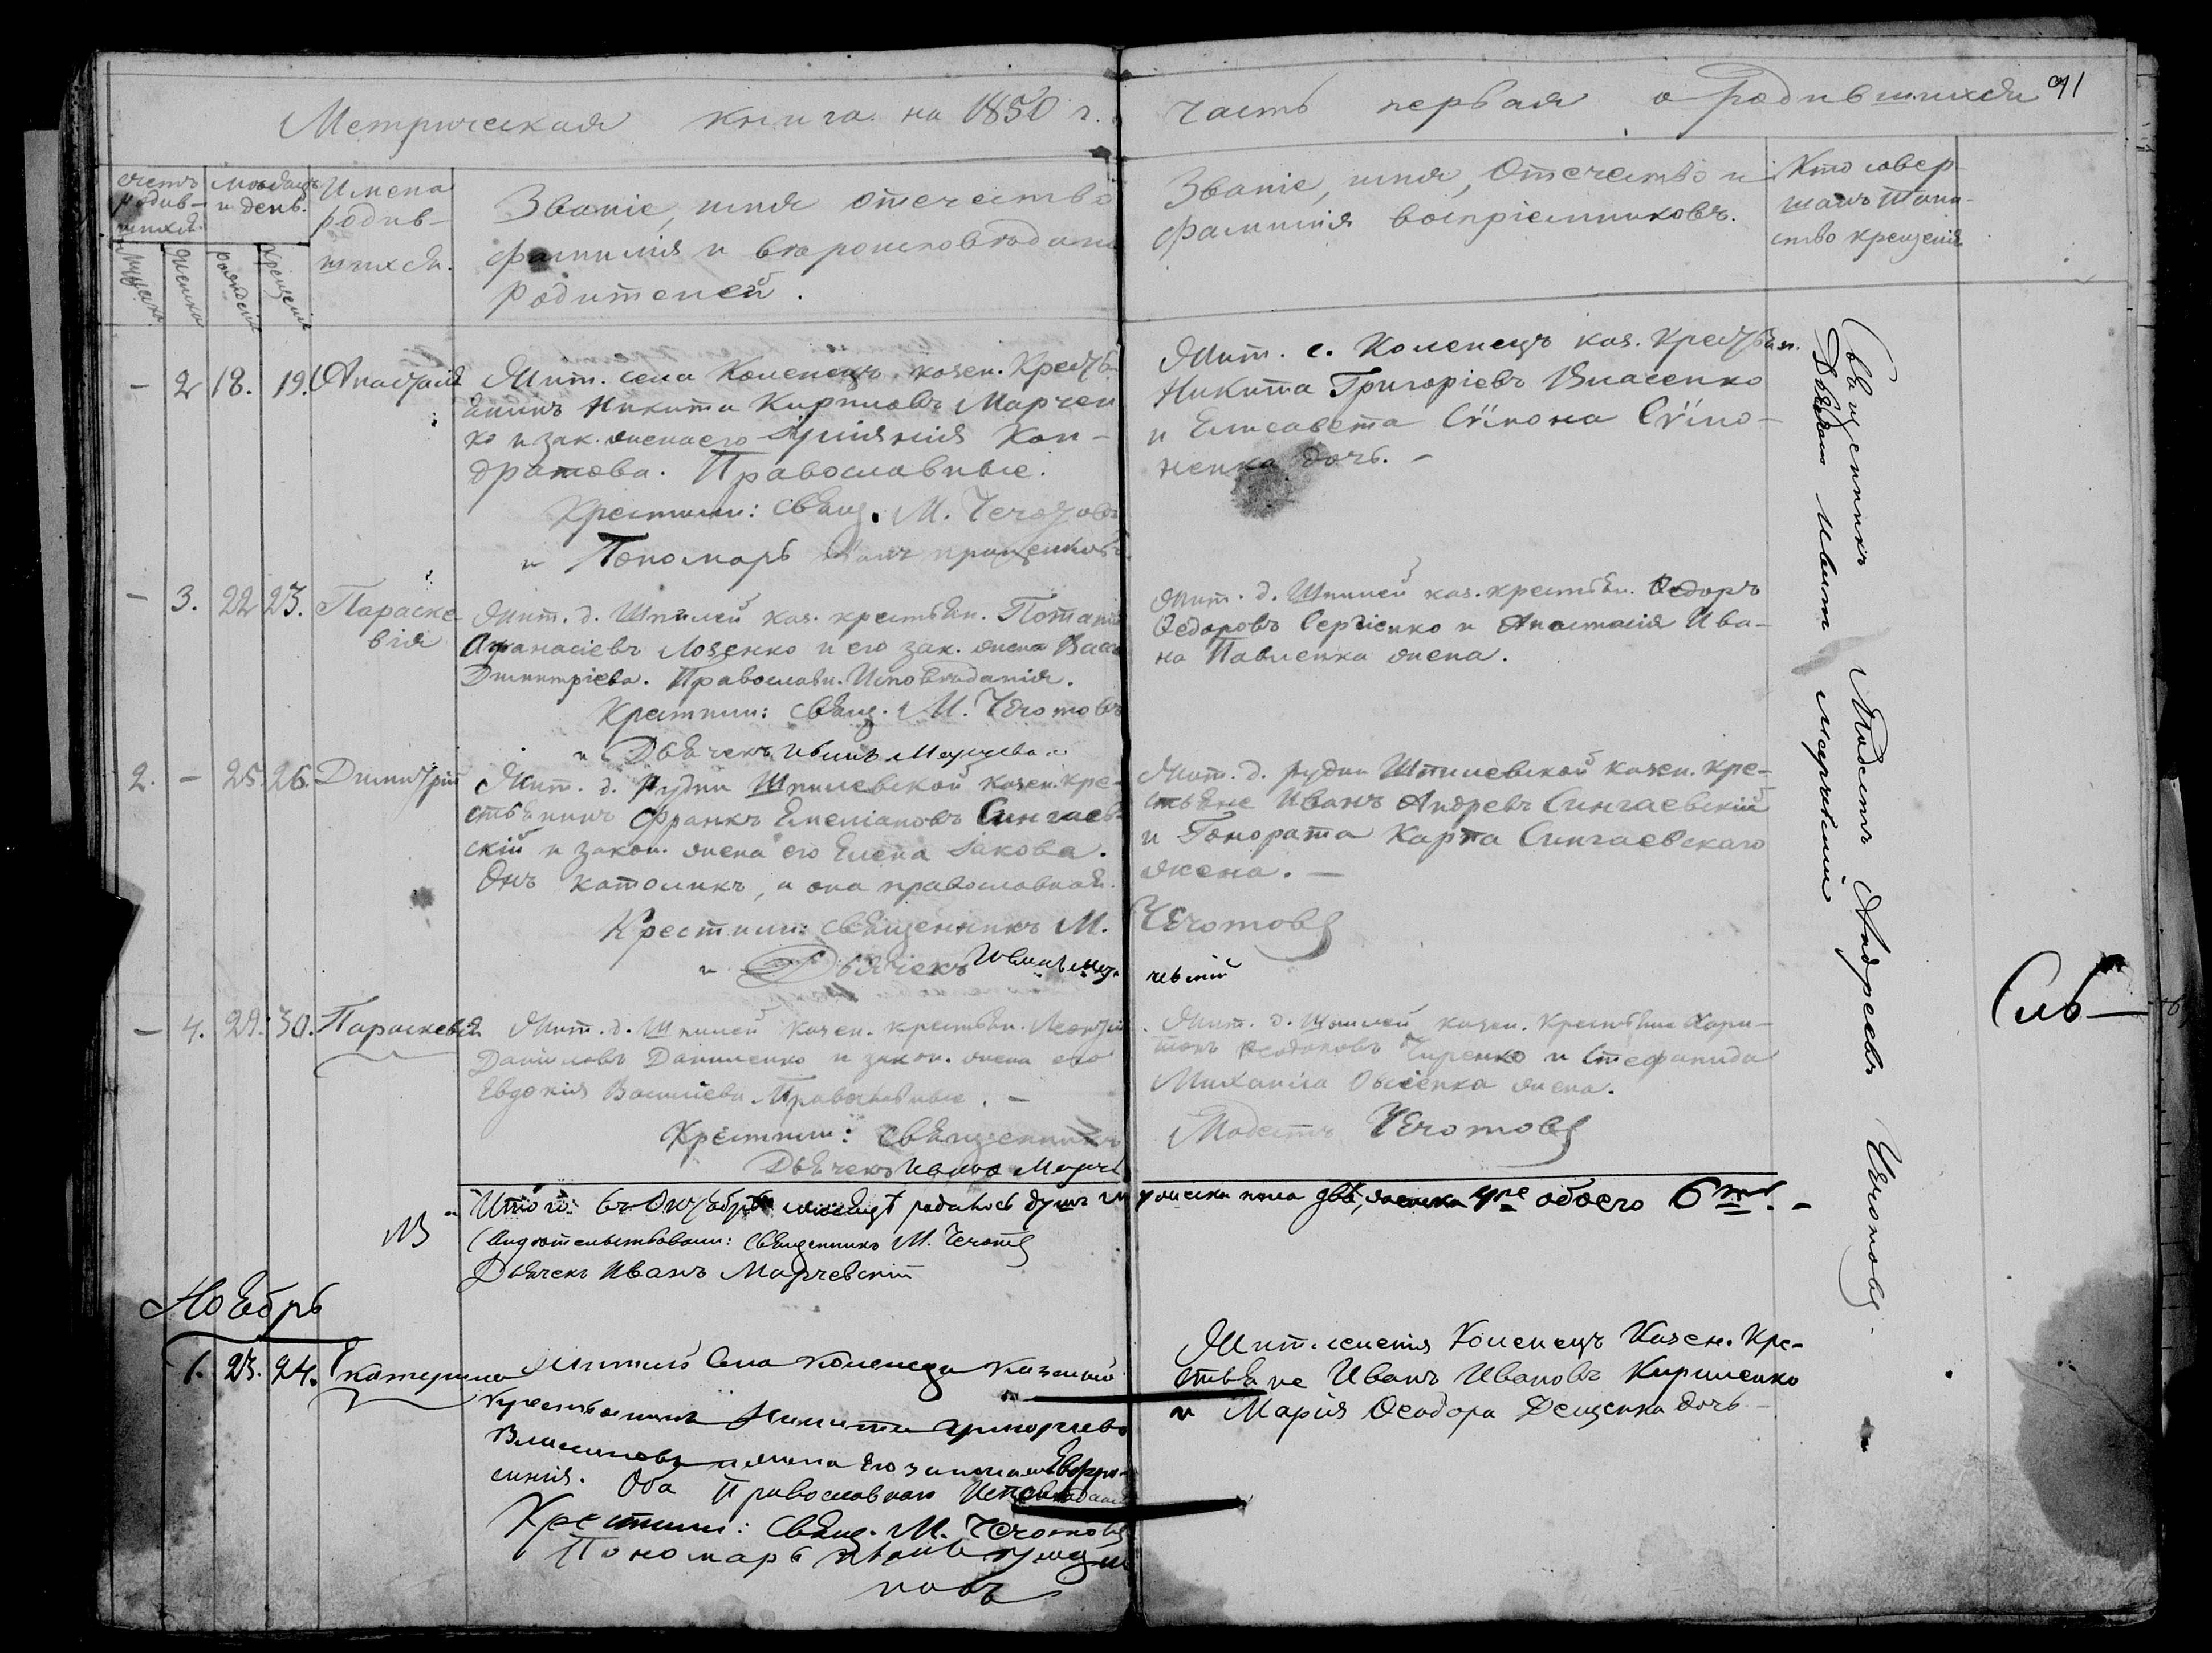 Метрическая книга на 1850 г. часть первая о родившихся 91
счетъ родив-
шихся
мѣсяцъ
и день.
Имена
родив-
шихся.
Званіе, имя отечество
фамилія и вѣроисповѣдані
родителей.
Званіе, имя, Отечество и
фамилія воспріемниковъ.
Кто совер-
шалъ Таин-
ство крещенія
Мужеск.
Женска
рожденія
Крещенія
- 2 18. 19. Анастасія
Жит. села Коленецъ, казен. Кресть-
янинъ Никита Кириловъ Марчен
ко и зак. жена его Кон-
дратова. Православные.
Крестили: Свящ. М. Чечотовъ
и Пономарь
Жит. с. Коленецъ каз. Крестьян.
Никита Григоріевъ Власенко
и Елисавета
ненка дочь. -
- 3. 22 23. Параске-
вія
Жит. д. Шпилей каз. крестьян. Потапій
Афанасіевъ Лозенко и его зак. жена Васс
Димитріева. Православн. Исповѣданія.
Крестили: Свящ. М. Чечотовъ
и Дьячекъ Иванъ
Жит. д. Шпилей каз. крестьян. Ѳедоръ
Ѳедоровъ Сергіенко и Анастасія Ива-
на Павленка жена.
2. - 25. 26. Димитрій
Жит. д. Рудни Шпилевской казен. кре-
стьянинъ Франкъ Емеліановъ Сингаев-
скій и закон. жена его Елена Іакова.
Онъ католикъ, и она православная.
Крестили: Священникъ М. Чечотовъ
и Дьячекъ Иванъ Мар чевскій
Жит. д. Рудни Шпилевской казен. кре-
стьяне Иванъ Андреевъ Сингаевскій
и Гонората Карпа Сингаевскаго
жена. -
- 4. 29. 30. Параскевія
Жит. д. Шпилей казен. крестьян. Леонтій
Даніиловъ Даниленко и закон. жена его
Евдокія Василіева. Православные. -
Крестили: Священникъ Модестъ Чечотовъ
Дьячекъ Иванъ Марче
Жит. д. Шпилей казен. Крестьяне Хари-
тонъ Чиренко и Стефанида
Михаила Овсіенка жена.
Итого: въ Октябрѣ мѣсяцѣ родилось душъ мужеска пола два, женска 4ре обоего 6ть. -
Свидѣтельствовали: Священникъ М. Чечотовъ
Дьячекъ Иванъ Марчевскій
Ноябрь
1. 23. 24. Екатерина
Житель села Коленецъ Казенный
крестьянинъ Никита Григорьевъ
Власенковъ и жена его законная Евфро-
синія. Оба Православнаго Исповѣданія
Крестили: Свящ. М. Чечотовъ
Пономарь
новъ
Жит. селенія Коленецъ Казен. Кре-
стьяне Иванъ Ивановъ Кириленко
и Марія Ѳеодора Дещенка дочь -
Священникъ Модестъ Андреевъ Чечотовъ
Дьячокъ Иванъ Марчевскій